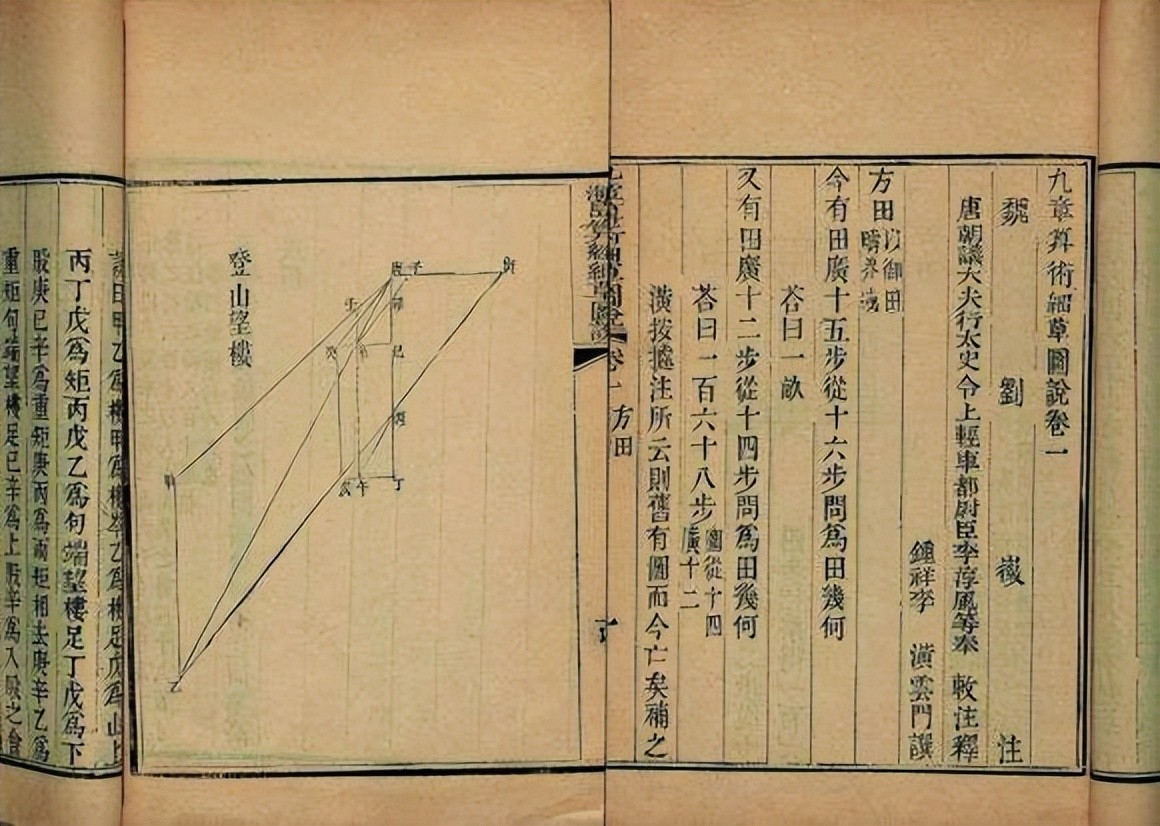 九章算術細草圖說卷一
魏 劉 徽 注
唐朝議大夫行太史令上輕車都尉臣李淳風等奉 敕注釋
鍾祥李 潢雲門譔
方田以御田疇界域
今有田廣十五步從十六步問爲田幾何
荅曰一畝
又有田廣十二步從十四步問爲田幾何
荅曰一百六十八步圖從十四廣十二
潢按據注所云則舊有圖而今亡矣補之
卷一 方田
海島算經細草圖說
登山望樓
庚 子
壬
卯
癸 辛 巳
丙
甲
戌 午 丁
乙
丙丁戊爲矩丙戊乙爲句端望樓足丁戊爲下
股庚巳辛爲重矩庚丙爲兩矩相去庚辛乙爲
重矩句端望樓足巳辛爲上股辛爲入股之會